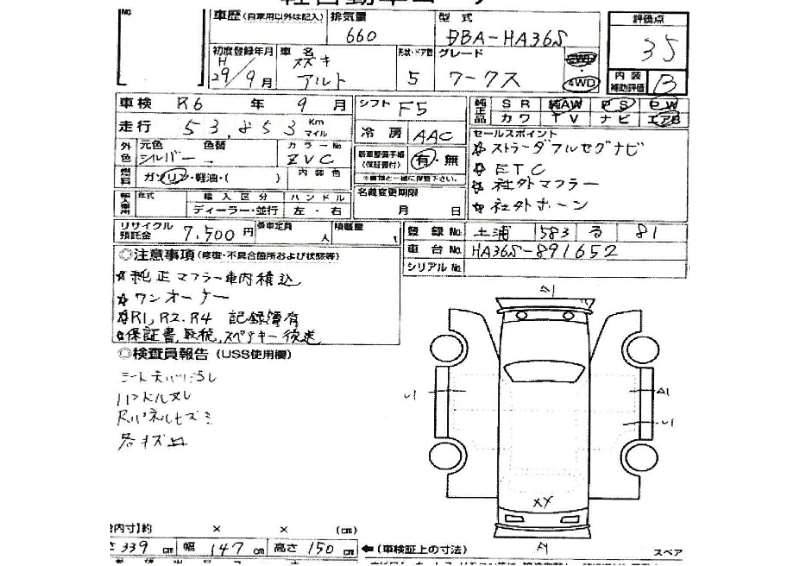 No.
車歴 (自家用以外は記入)
排気量
660
型式
DBA-HA36S
評価点
35
初度登録年月
H
29/9月
車名
スズキ
アルト
形状・ドア数
5
グレード
ワークス
2WD
4WD
内装
補助評価
B
車検 R6 年 9 月
シフト F5
純正品
SR 純AW PS PW
カワ TV ナビ エアB
走行 53,853 Km
マイル
冷房 AAC
セールスポイント
☆ストラーダフルセグナビ
☆ETC
☆社外マフラー
☆社外ホーン
外色
元色 色替
シルバー
カラーNo.
ZVC
新車整備手帳
(保証書付)
有・無
燃料
ガソリン・軽油・( )
内装色
名義変更期限
月 日
年式
輸入区分
ハンドル
ディーラー・並行
左・右
リサイクル
預託金
7,500円
乗車定員
人
積載量
t
登録No. 土浦 583 る 81
車台No. HA36S-891652
シリアルNo.
◎注意事項 (修復・不具合箇所および状態等)
☆純正マフラー車内積込
☆ワンオーナー
☆R1,R2,R4 記録簿有
☆保証書、取説、スペアキー後送
◎検査員報告 (USS使用欄)
ハンドルスレ
A1
A1
XY
(内寸)約 × × (cm)
339cm 幅 147cm 高さ 150cm
←(車検証上の寸法)
スペア